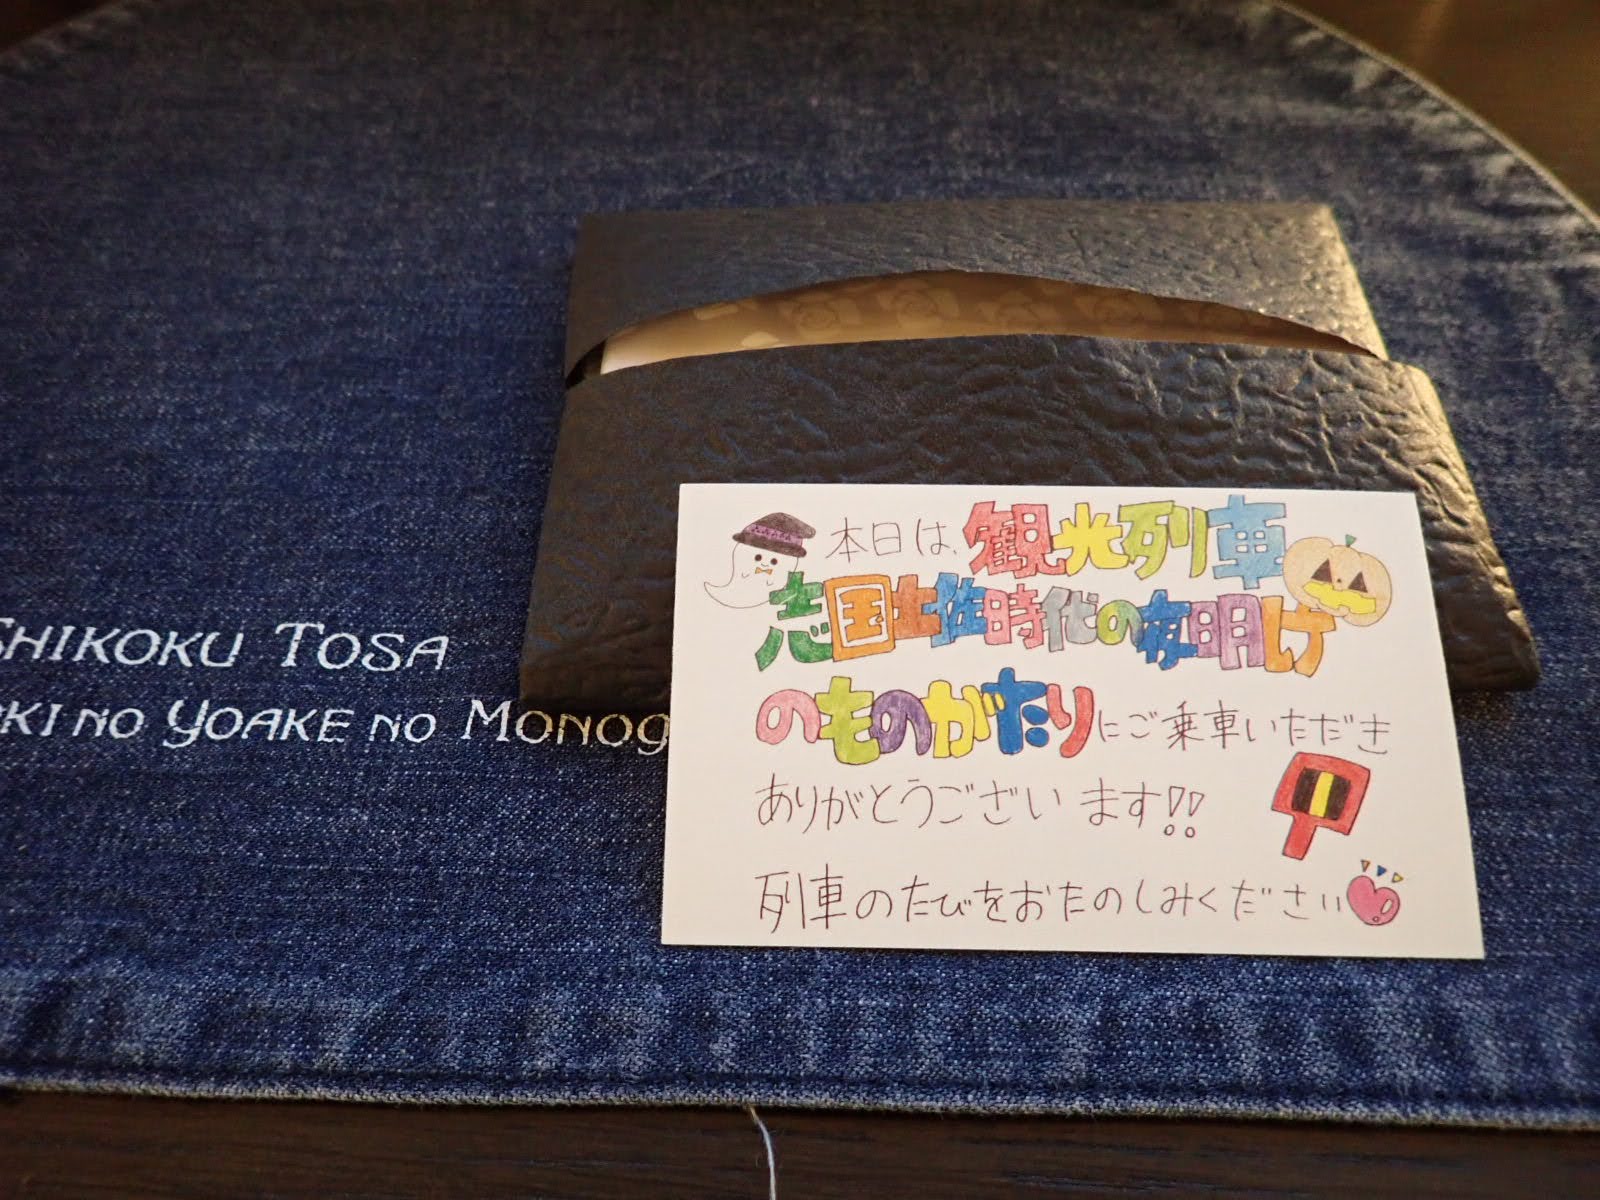 SHIKOKU TOSA
NO YOAKE NO MONOG
本日は、観光列車
志国土佐時代の夜明け
のものがたりにご乗車いただき
ありがとうございます!!
列車のたびをおたのしみください